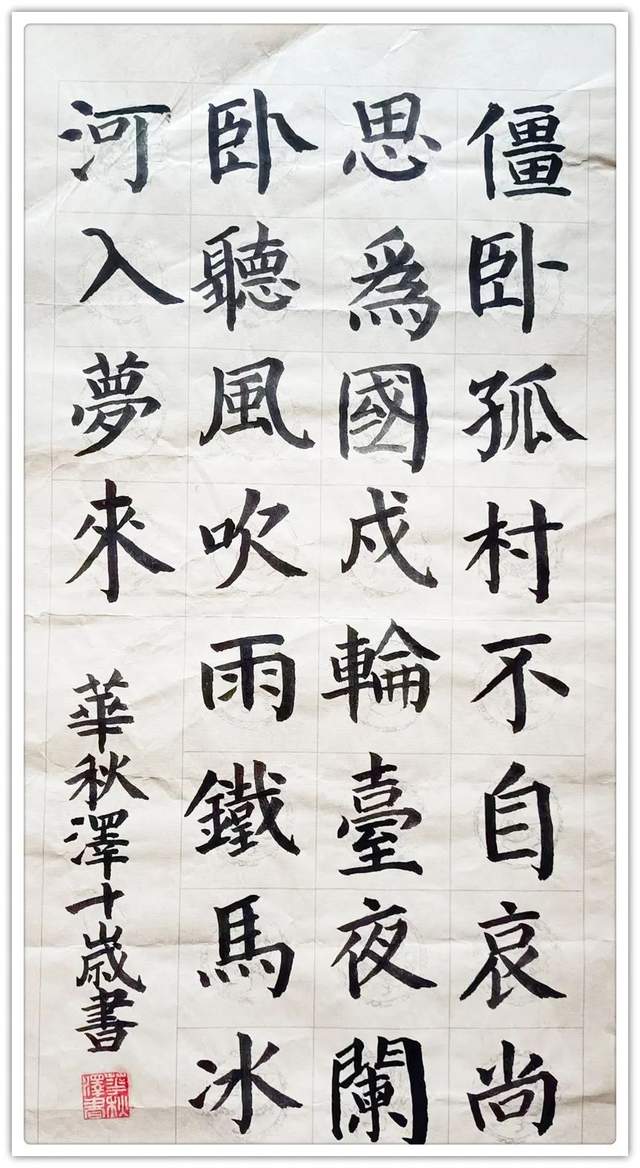 僵卧孤村不自哀尚
思爲國戍輪臺夜闌
卧聽風吹雨鐵馬冰
河入夢來
華秋澤十歲書
華秋澤書